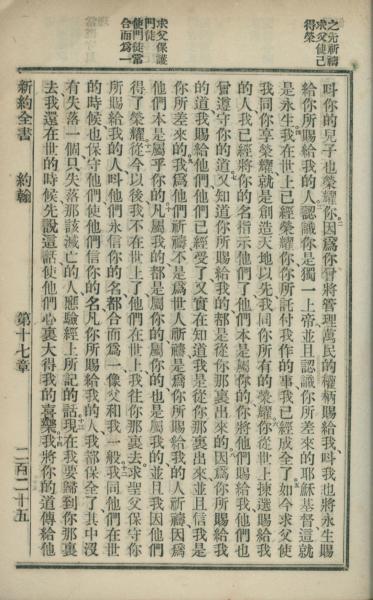 之先祈禱
求父使己
得榮
求父保護
門徒
使門徒當
合而爲一
叫你的兒子也榮耀你、因爲你曾將管理萬民的權柄賜給我、叫我也將永生賜
給你所賜給我的人、認識你是獨一上帝、並且認識你所差來的耶穌基督、這就
是永生、我在世上已經榮耀你、你所託付我作的事、我已經成全了、如今求父使
我同你享榮耀、就是創造天地以先、我同你所有的榮耀、你從世上揀選賜給我
的人、我已經將你的名指示他們了、他們本是屬你的、你將他們賜給我、他們也
曾遵守你的道、又知道你所賜給我的、都是從你那裏出來的、因爲你所賜給我
的道、我賜給他們、他們已經受了、又實在知道我是從你那裏出來、並且信我是
你所差來的、我爲他們祈禱、不是爲世人祈禱、是爲你所賜給我的人祈禱、因爲
他們本是屬乎你的、凡屬我的都是屬你的、屬你的也是屬我的、並且我因他們
得了榮耀、從今以後我不在世上了、他們在世上、我往你那裏去、求聖父保守你
所賜給我的人、叫他們永信你的名、都合而爲一、像父和我一般、我同他們在世
的時候、也保守他們、使他們信你的名、凡你所賜給我的人、我都保全了、其中沒
有失落一個、只失落那該滅亡的人、應驗經上所記的話、現在我要歸到你那裏
去、我還在世的時候、先說這話、使他們心裏大得我的喜樂、我將你的道傳給他
新約全書 約翰 第十七章 二百二十五